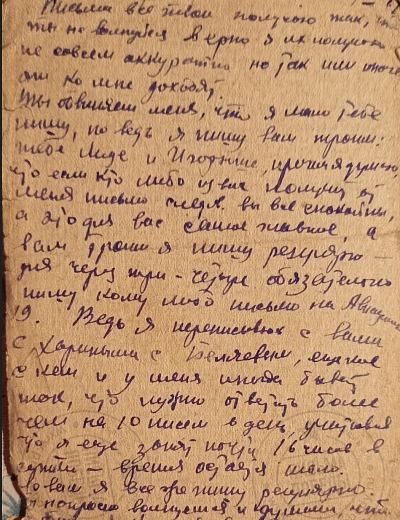 Письма все твои получаю так, что
ты не волнуйся верно я их получаю
не совсем аккуратно но так или иначе
они ко мне доходят.
Ты обвиняешь меня, что я мало тебе
пишу, но ведь я пишу вам троим:
тебе Лиде и, причем я думаю,
что если кто либо из вас получил от
меня письмо след. вы все спокойны,
а это для вас самое главное, а
вам троим я пишу регулярно
дня через три-четыре обязательно
пишу кому либо письмо на
19. Ведь я переписываюсь с вами
с с, еще кое
с кем и у меня иногда бывает
так, что нужно ответить более
чем на 10 писем в день, учитывая
что я еще занят почти 16 часов в
сутки – времени остается мало.
Но вам я все же пишу регулярно.
и напрасно волнуешься и думаешь, что